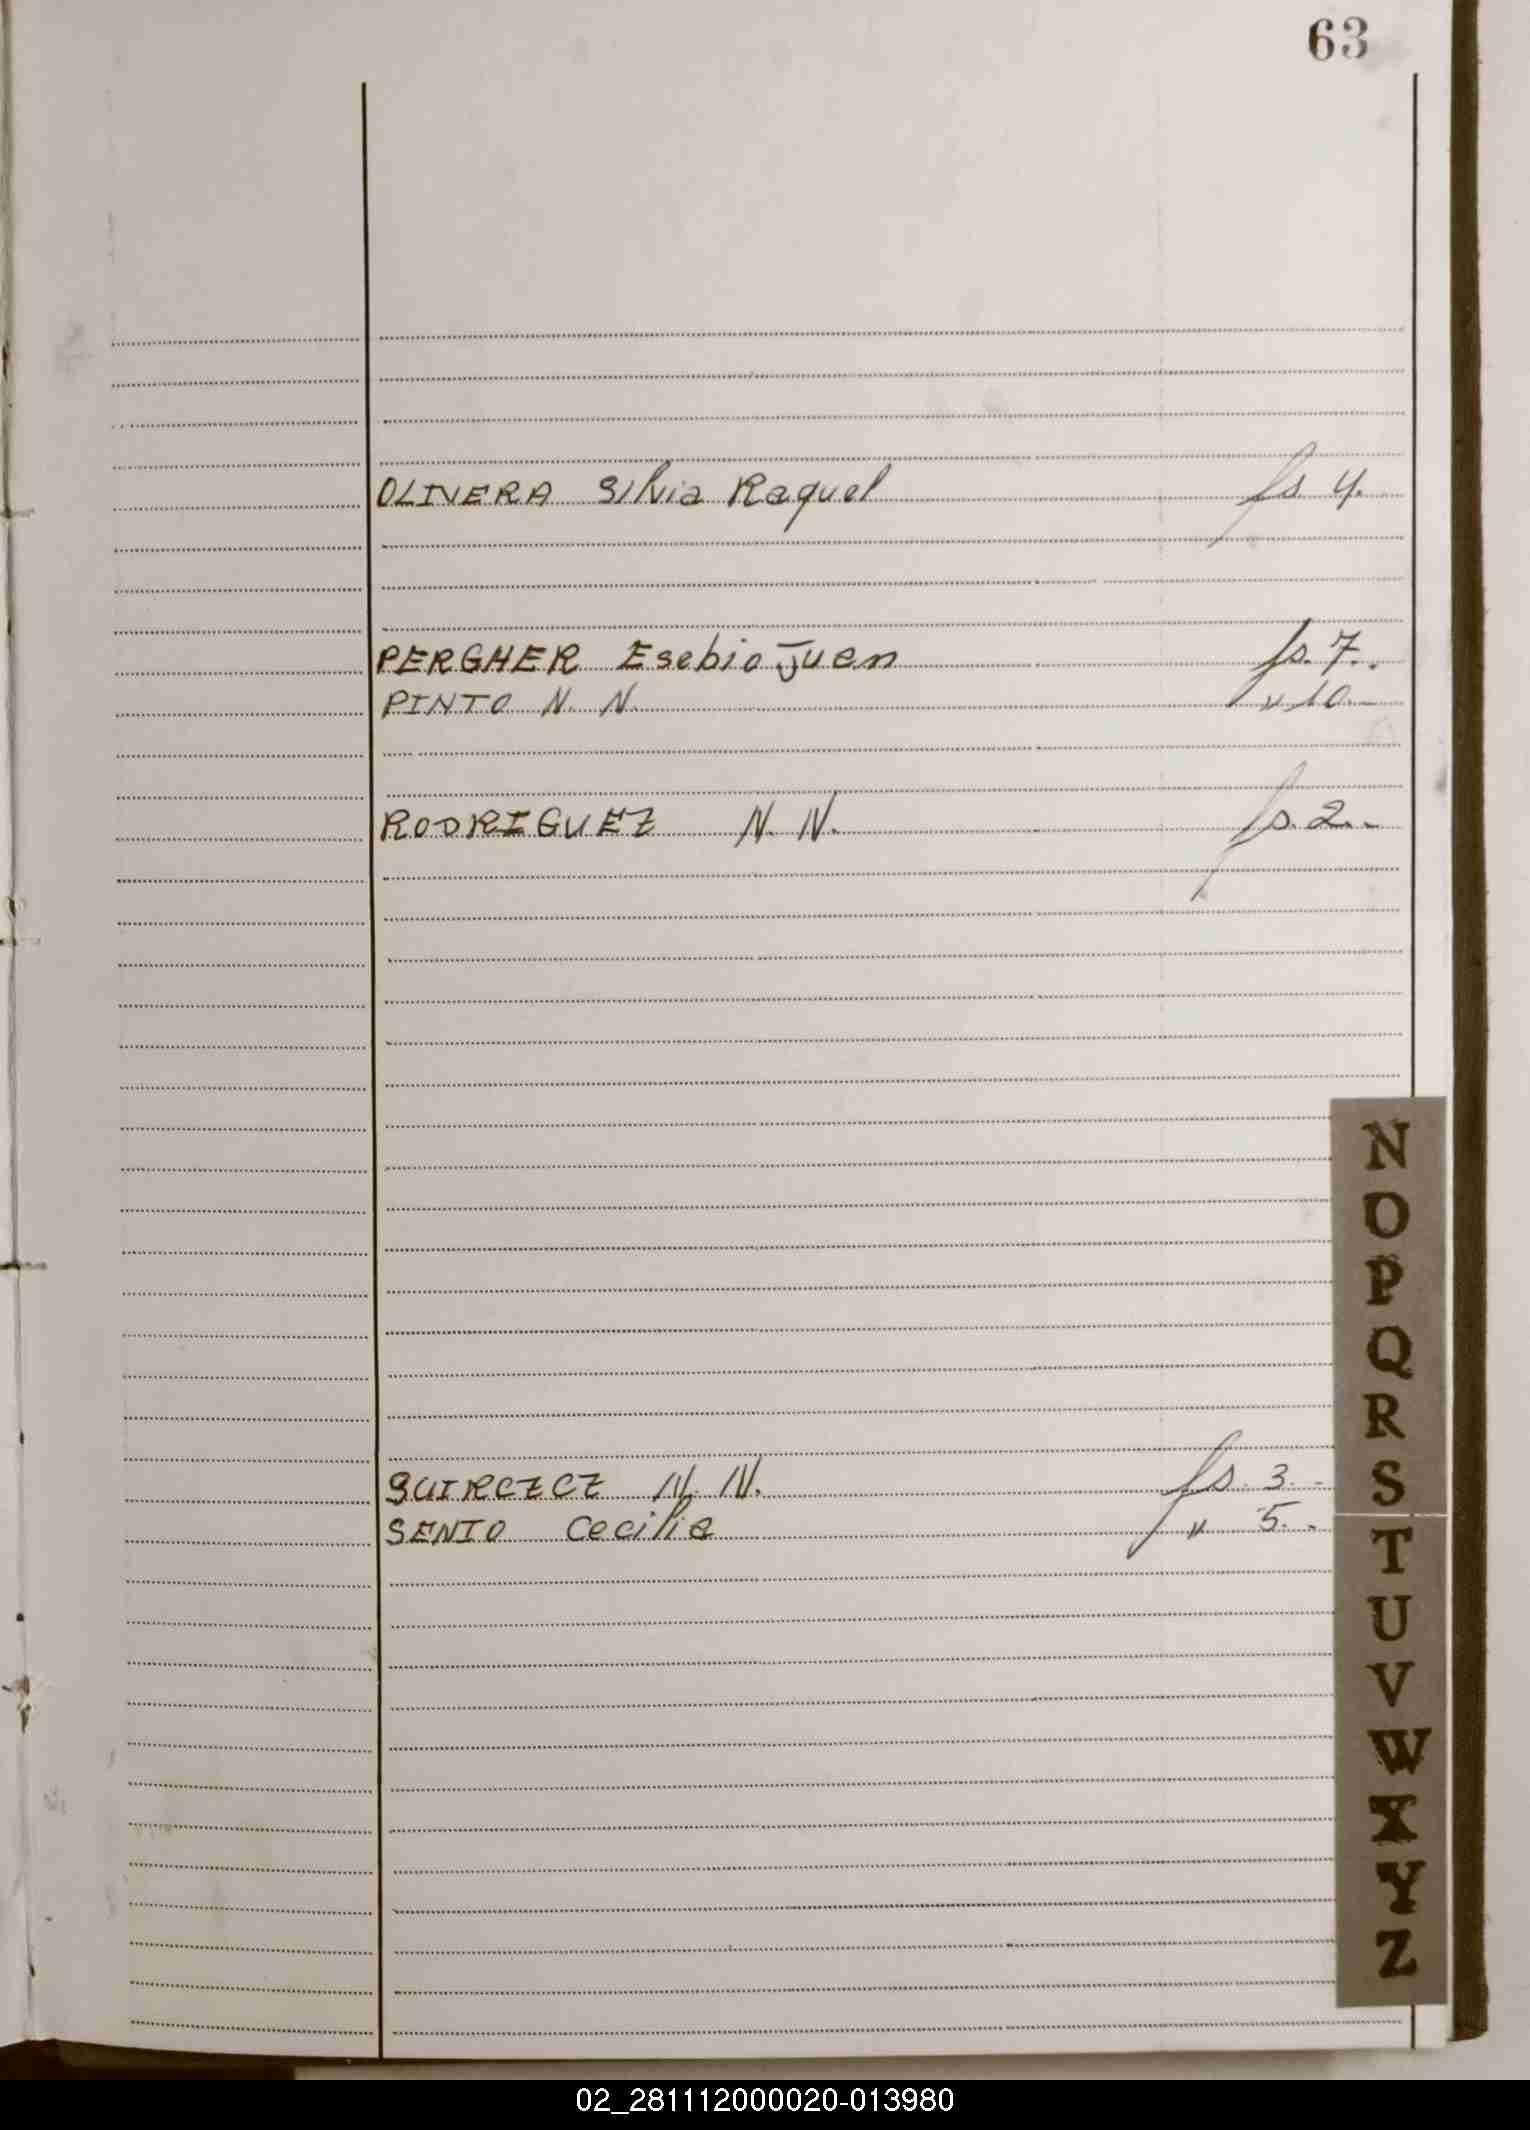 63
OLIVERA Silvia Raquel fs 4.
PERGHER Esebio Juan fs. 7..
PINTO N. N. " 10.-
RODRIGUEZ N. N. fs. 2.-
SUIRCZCZ N. N. fs. 3.-
SENIO Cecilia " 5.-
N
O
P
Q
R
S
T
U
V
W
X
Y
Z
02_281112000020-013980